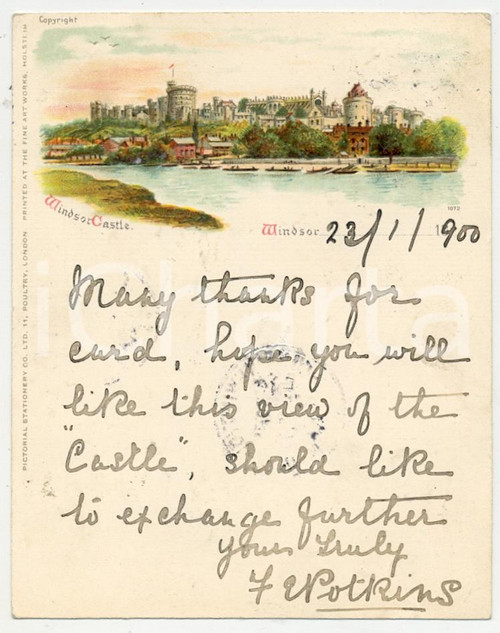 Copyright
PICTORIAL STATIONERY CO. LTD. 11, POULTRY, LONDON PRINTED AT THE FINE ART WORKS, HOLSTEIN
Windsor Castle.
1012
Windsor 23/1/1900
Many thanks for
card, hope you will
like this view of the
"Castle", should like
to exchange further
Yours Truly
iCharta